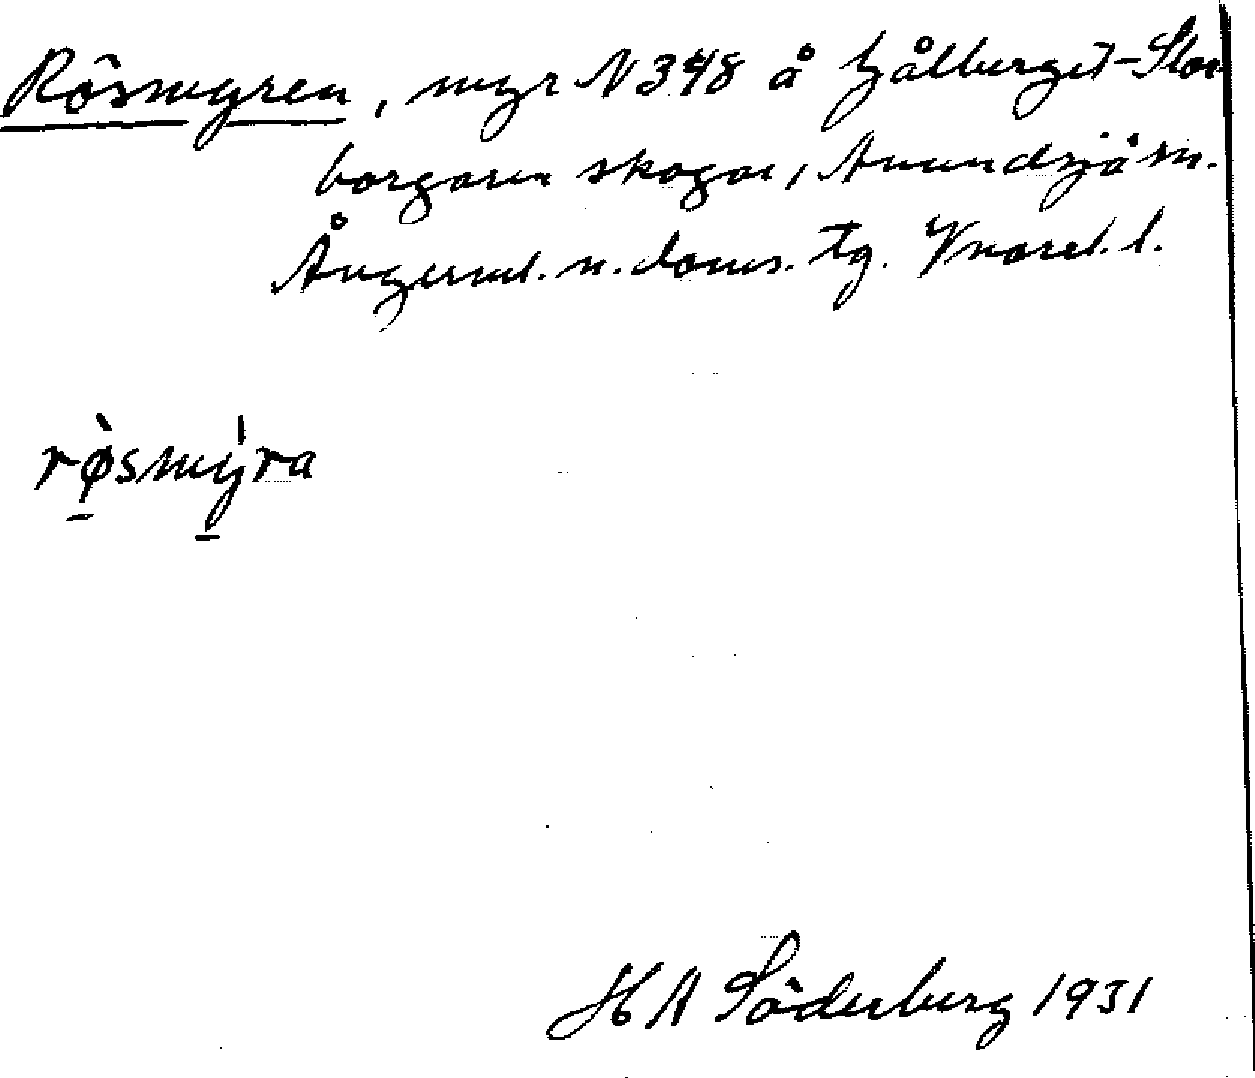 Rösmyren, myr N 348 å Gålberget-Stor
borgaren skogar, Anundsjö sn.
Ångerml. n. doms. tg. Vnorrl. l.
røsmyra
H A Söderberg 1931